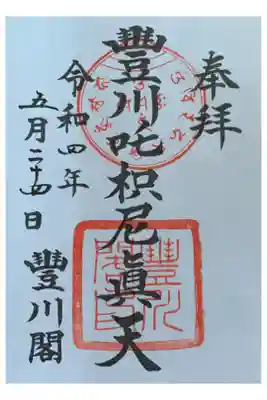 奉拝
豐川吒枳尼眞天
令和四年
五月二十四日
豐川閣